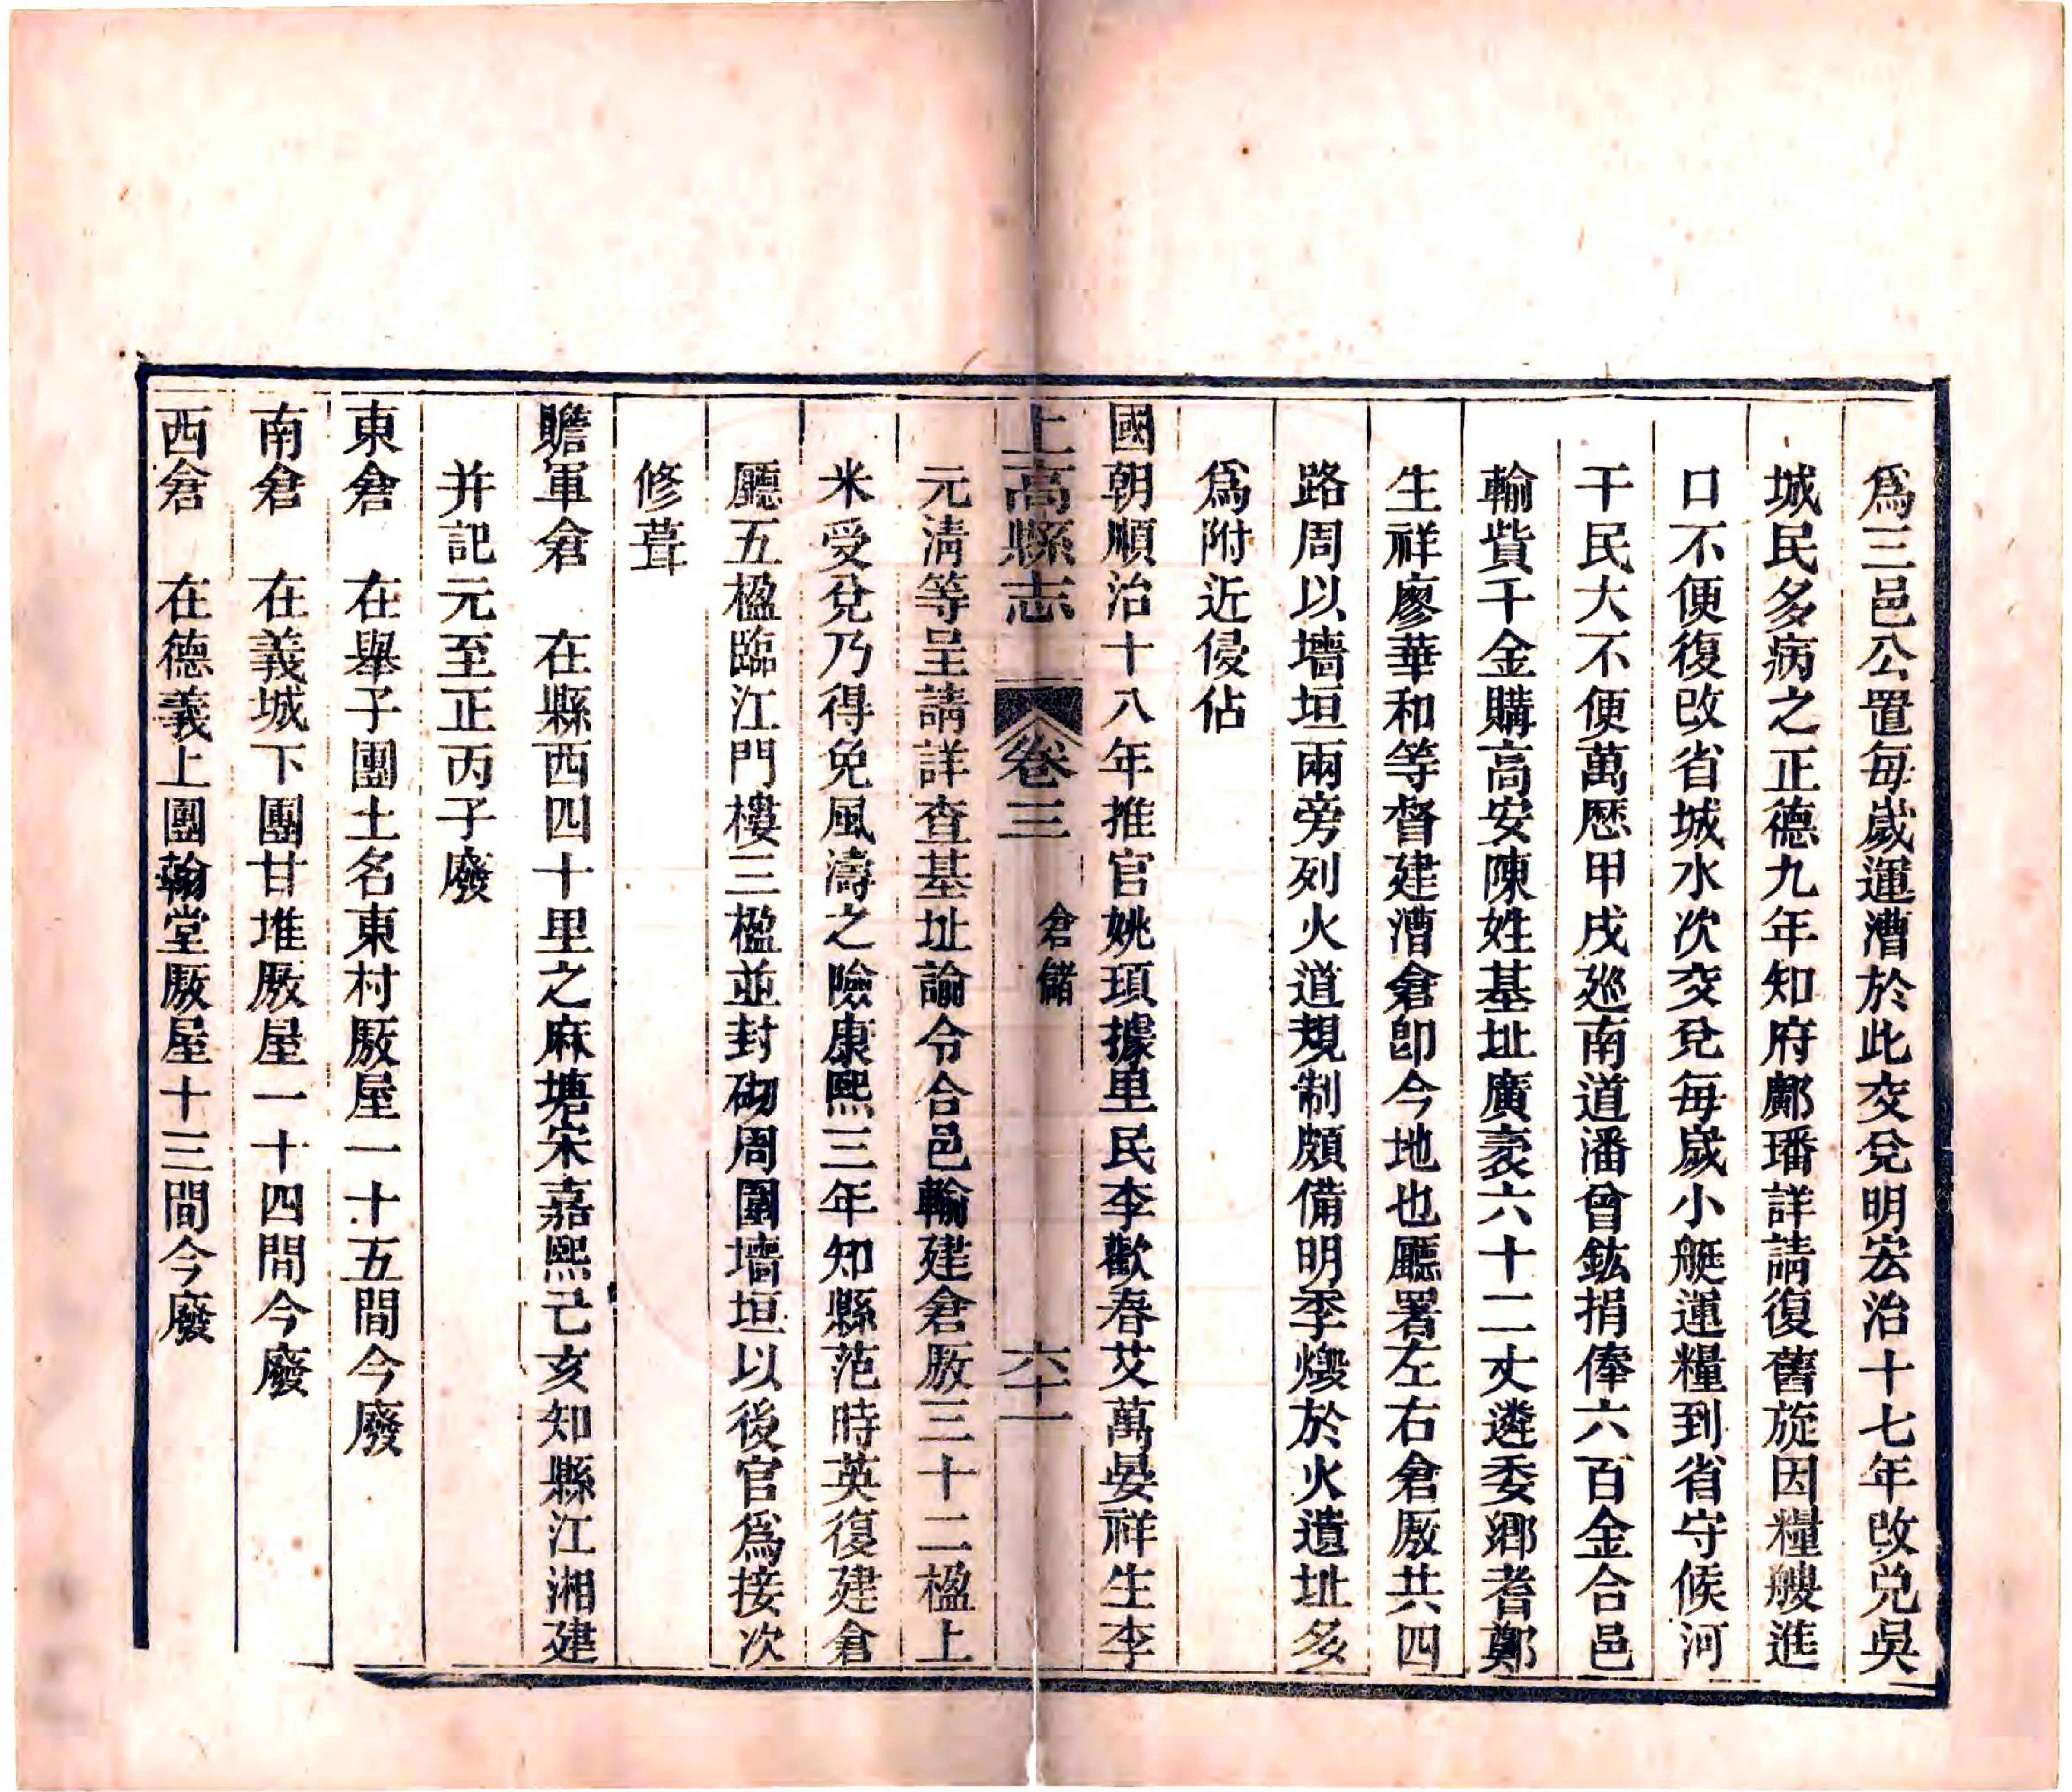 爲三邑公置每歲運漕於此交兌明宏治十七年改兌吳
城民多病之正德九年知府鄺璠詳請復舊旋因糧艘進
口不便復改省城水次交兌每歲小艇運糧到省守候河
干民大不便萬歷甲戌廵南道潘曾鈜捐俸六百金合邑
輸貲千金購高安陳姓基址廣袤六十二丈遴委鄉耆鄭
生祥廖華和等督建漕倉卽今地也廳署左右倉厫共四
路周以墻垣兩旁列火道規制頗備明季燬於火遺址多
爲附近侵佔
國朝順治十八年推官姚頊據里民李歡春艾萬晏祥生李
上高縣志 卷三 倉儲 六十一
元淸等呈請詳查基址諭令合邑輸建倉厫三十二楹上
米受兌乃得免風濤之險康熙三年知縣范時英復建倉
廳五楹臨江門樓三楹並封砌周圍墻垣以後官爲接次
修葺
贍軍倉 在縣西四十里之麻塘宋嘉熙己亥知縣江湘建
幷記元至正丙子廢
東倉 在舉子團土名東村厫屋一十五間今廢
南倉 在義城下團甘堆厫屋一十四間今廢
西倉 在德義上團翰堂厫屋十三間今廢